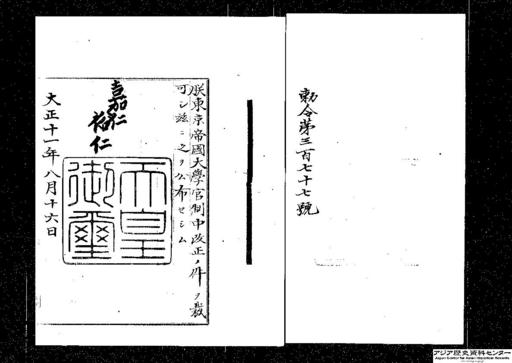 勅令第三百七十七號
朕東京帝國大學官制中改正ノ件ヲ裁
可シ茲ニ之ヲ公布セシム
嘉仁
裕仁
天皇
御璽
大正十一年八月十六日
アジア歴史資料センター
Japan Center for Asian Historical Records